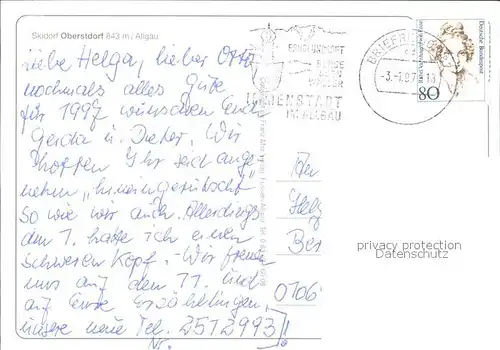 Skidorf Oberstdorf 843 m / Allgäu
Liebe Helga, lieber Otto,
nochmals alles Gute
für 1997 wünschen Euch
Gerda u. Dieter. Wir
hoffen Ihr seid ange-
nehm "hineingerutscht"
so wie wir auch. Allerdings
am 1. hatte ich einen
schweren Kopf. - Wir freuen
uns auf den 11. und
auf Eure Erzählungen,
unsere neue Tel. 2512993!
Nr.
ERHOLUNGSORT
BURGE
SEEN
WÄLDER
IMMENSTADT
IM ALLGÄU
BRIEFZ
-3.-1.97
Deutsche Bundespost
80
Helg
Ber
0106
privacy protection
Datenschutz